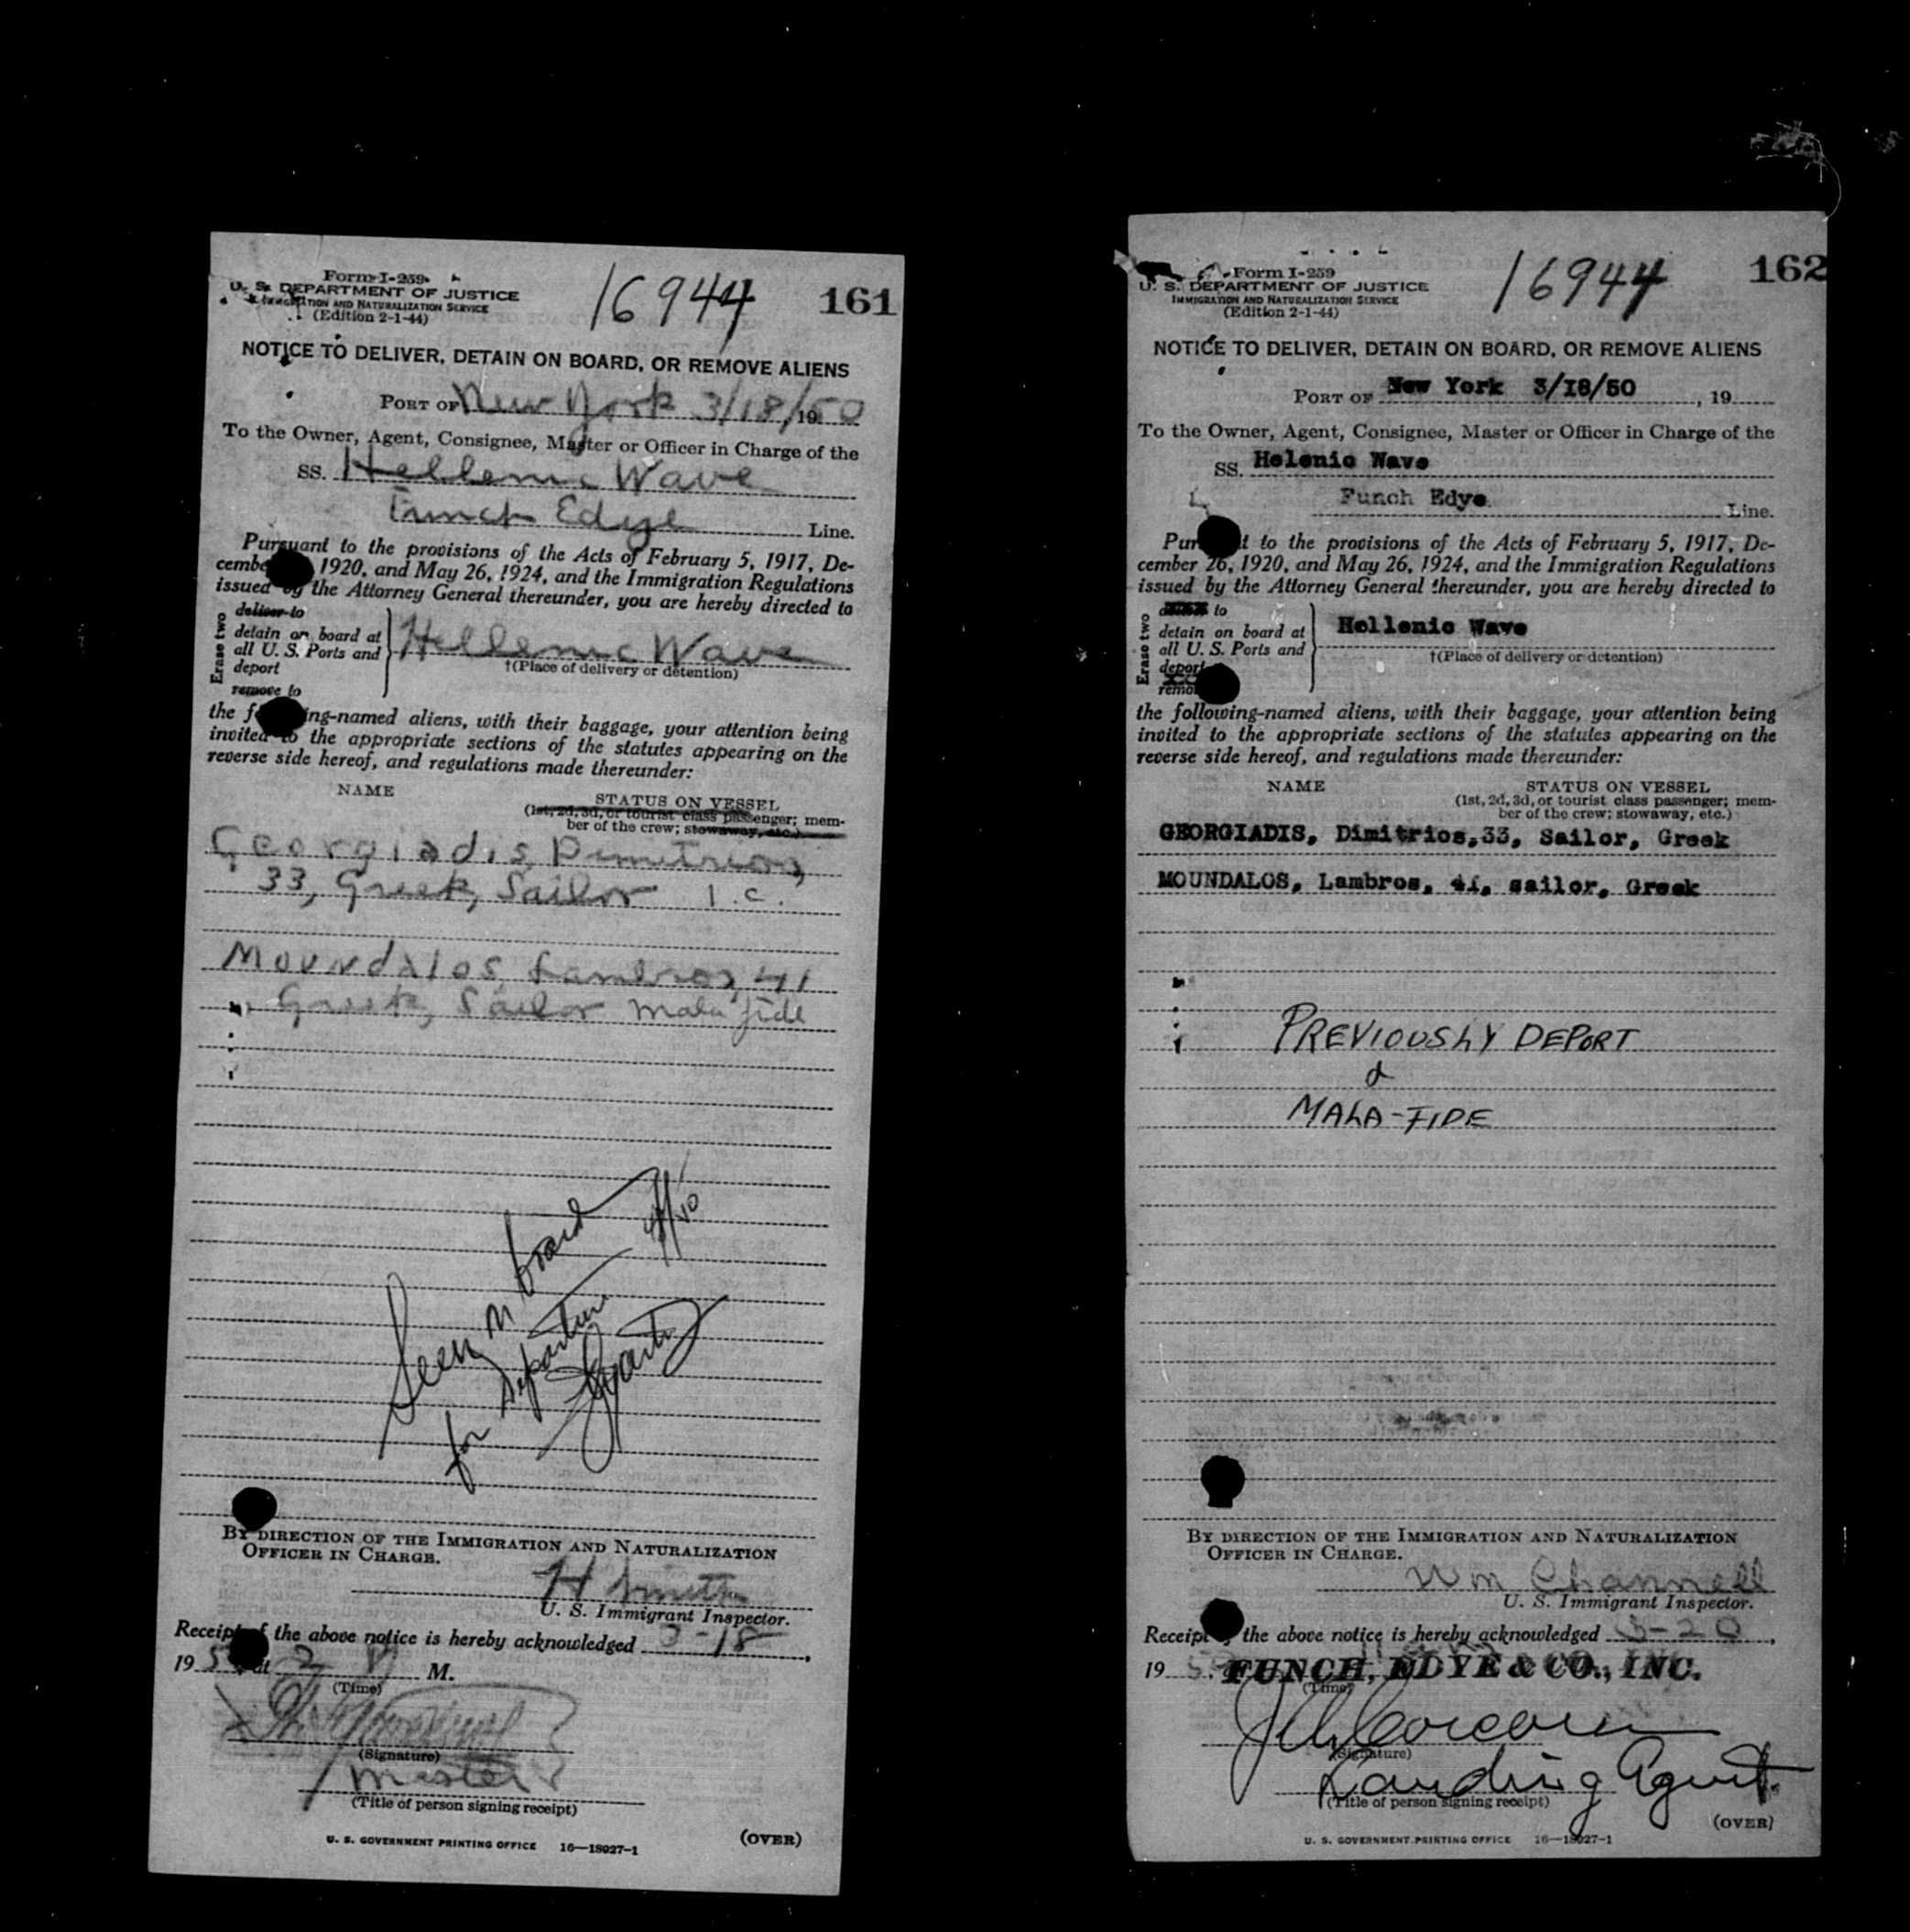 Form I-259
U. S. DEPARTMENT OF JUSTICE
IMMIGRATION AND NATURALIZATION SERVICE
(Edition 2-1-44)
16944
161
NOTICE TO DELIVER, DETAIN ON BOARD, OR REMOVE ALIENS
PORT OF New York 3/18/50, 19
To the Owner, Agent, Consignee, Master or Officer in Charge of the
SS. Hellenic Wave
Funch Edye Line.
Pursuant to the provisions of the Acts of February 5, 1917, De-
cember 1920, and May 26, 1924, and the Immigration Regulations
issued by the Attorney General thereunder, you are hereby directed to
Erase two
deliver to
detain on board at
all U. S. Ports and
deport
remove to
Hellenic Wave
†(Place of delivery or detention)
the following-named aliens, with their baggage, your attention being
invited to the appropriate sections of the statutes appearing on the
reverse side hereof, and regulations made thereunder:
NAME
STATUS ON VESSEL
(1st, 2d, 3d, or tourist class passenger; mem-
ber of the crew; stowaway, etc.)
Georgiadis, Dimitrios,
33, Greek, Sailor I.C.
Moundalos, Lambros, 41
Greek, Sailor mala fide
Seen on board
for Departure
BY DIRECTION OF THE IMMIGRATION AND NATURALIZATION
OFFICER IN CHARGE.
H Smith
U. S. Immigrant Inspector.
Receipt of the above notice is hereby acknowledged 3-18,
19 5 at 2 P M.
(Time)
(Signature)
Master
(Title of person signing receipt)
U. S. GOVERNMENT PRINTING OFFICE 16—18027-1
(OVER)
Form I-259
U. S. DEPARTMENT OF JUSTICE
IMMIGRATION AND NATURALIZATION SERVICE
(Edition 2-1-44)
16944
162
NOTICE TO DELIVER, DETAIN ON BOARD, OR REMOVE ALIENS
PORT OF New York 3/18/50, 19
To the Owner, Agent, Consignee, Master or Officer in Charge of the
SS. Helenic Wave
Funch Edye Line.
Pursuant to the provisions of the Acts of February 5, 1917, De-
cember 26, 1920, and May 26, 1924, and the Immigration Regulations
issued by the Attorney General thereunder, you are hereby directed to
Erase two
to
detain on board at
all U. S. Ports and
deport
remove
Hellenic Wave
†(Place of delivery or detention)
the following-named aliens, with their baggage, your attention being
invited to the appropriate sections of the statutes appearing on the
reverse side hereof, and regulations made thereunder:
NAME
STATUS ON VESSEL
(1st, 2d, 3d, or tourist class passenger; mem-
ber of the crew; stowaway, etc.)
GEORGIADIS, Dimitrios,33, Sailor, Greek
MOUNDALOS, Lambros, 41, sailor, Greek
PREVIOUSLY DEPORT
&
MALA-FIDE
BY DIRECTION OF THE IMMIGRATION AND NATURALIZATION
OFFICER IN CHARGE.
Wm Channell
U. S. Immigrant Inspector.
Receipt of the above notice is hereby acknowledged 3-20,
19 50 FUNCH, EDYE & CO., INC.
(Time)
J Corcoran
(Signature)
Landing Agent.
(Title of person signing receipt)
(OVER)
U. S. GOVERNMENT PRINTING OFFICE 16—18027-1